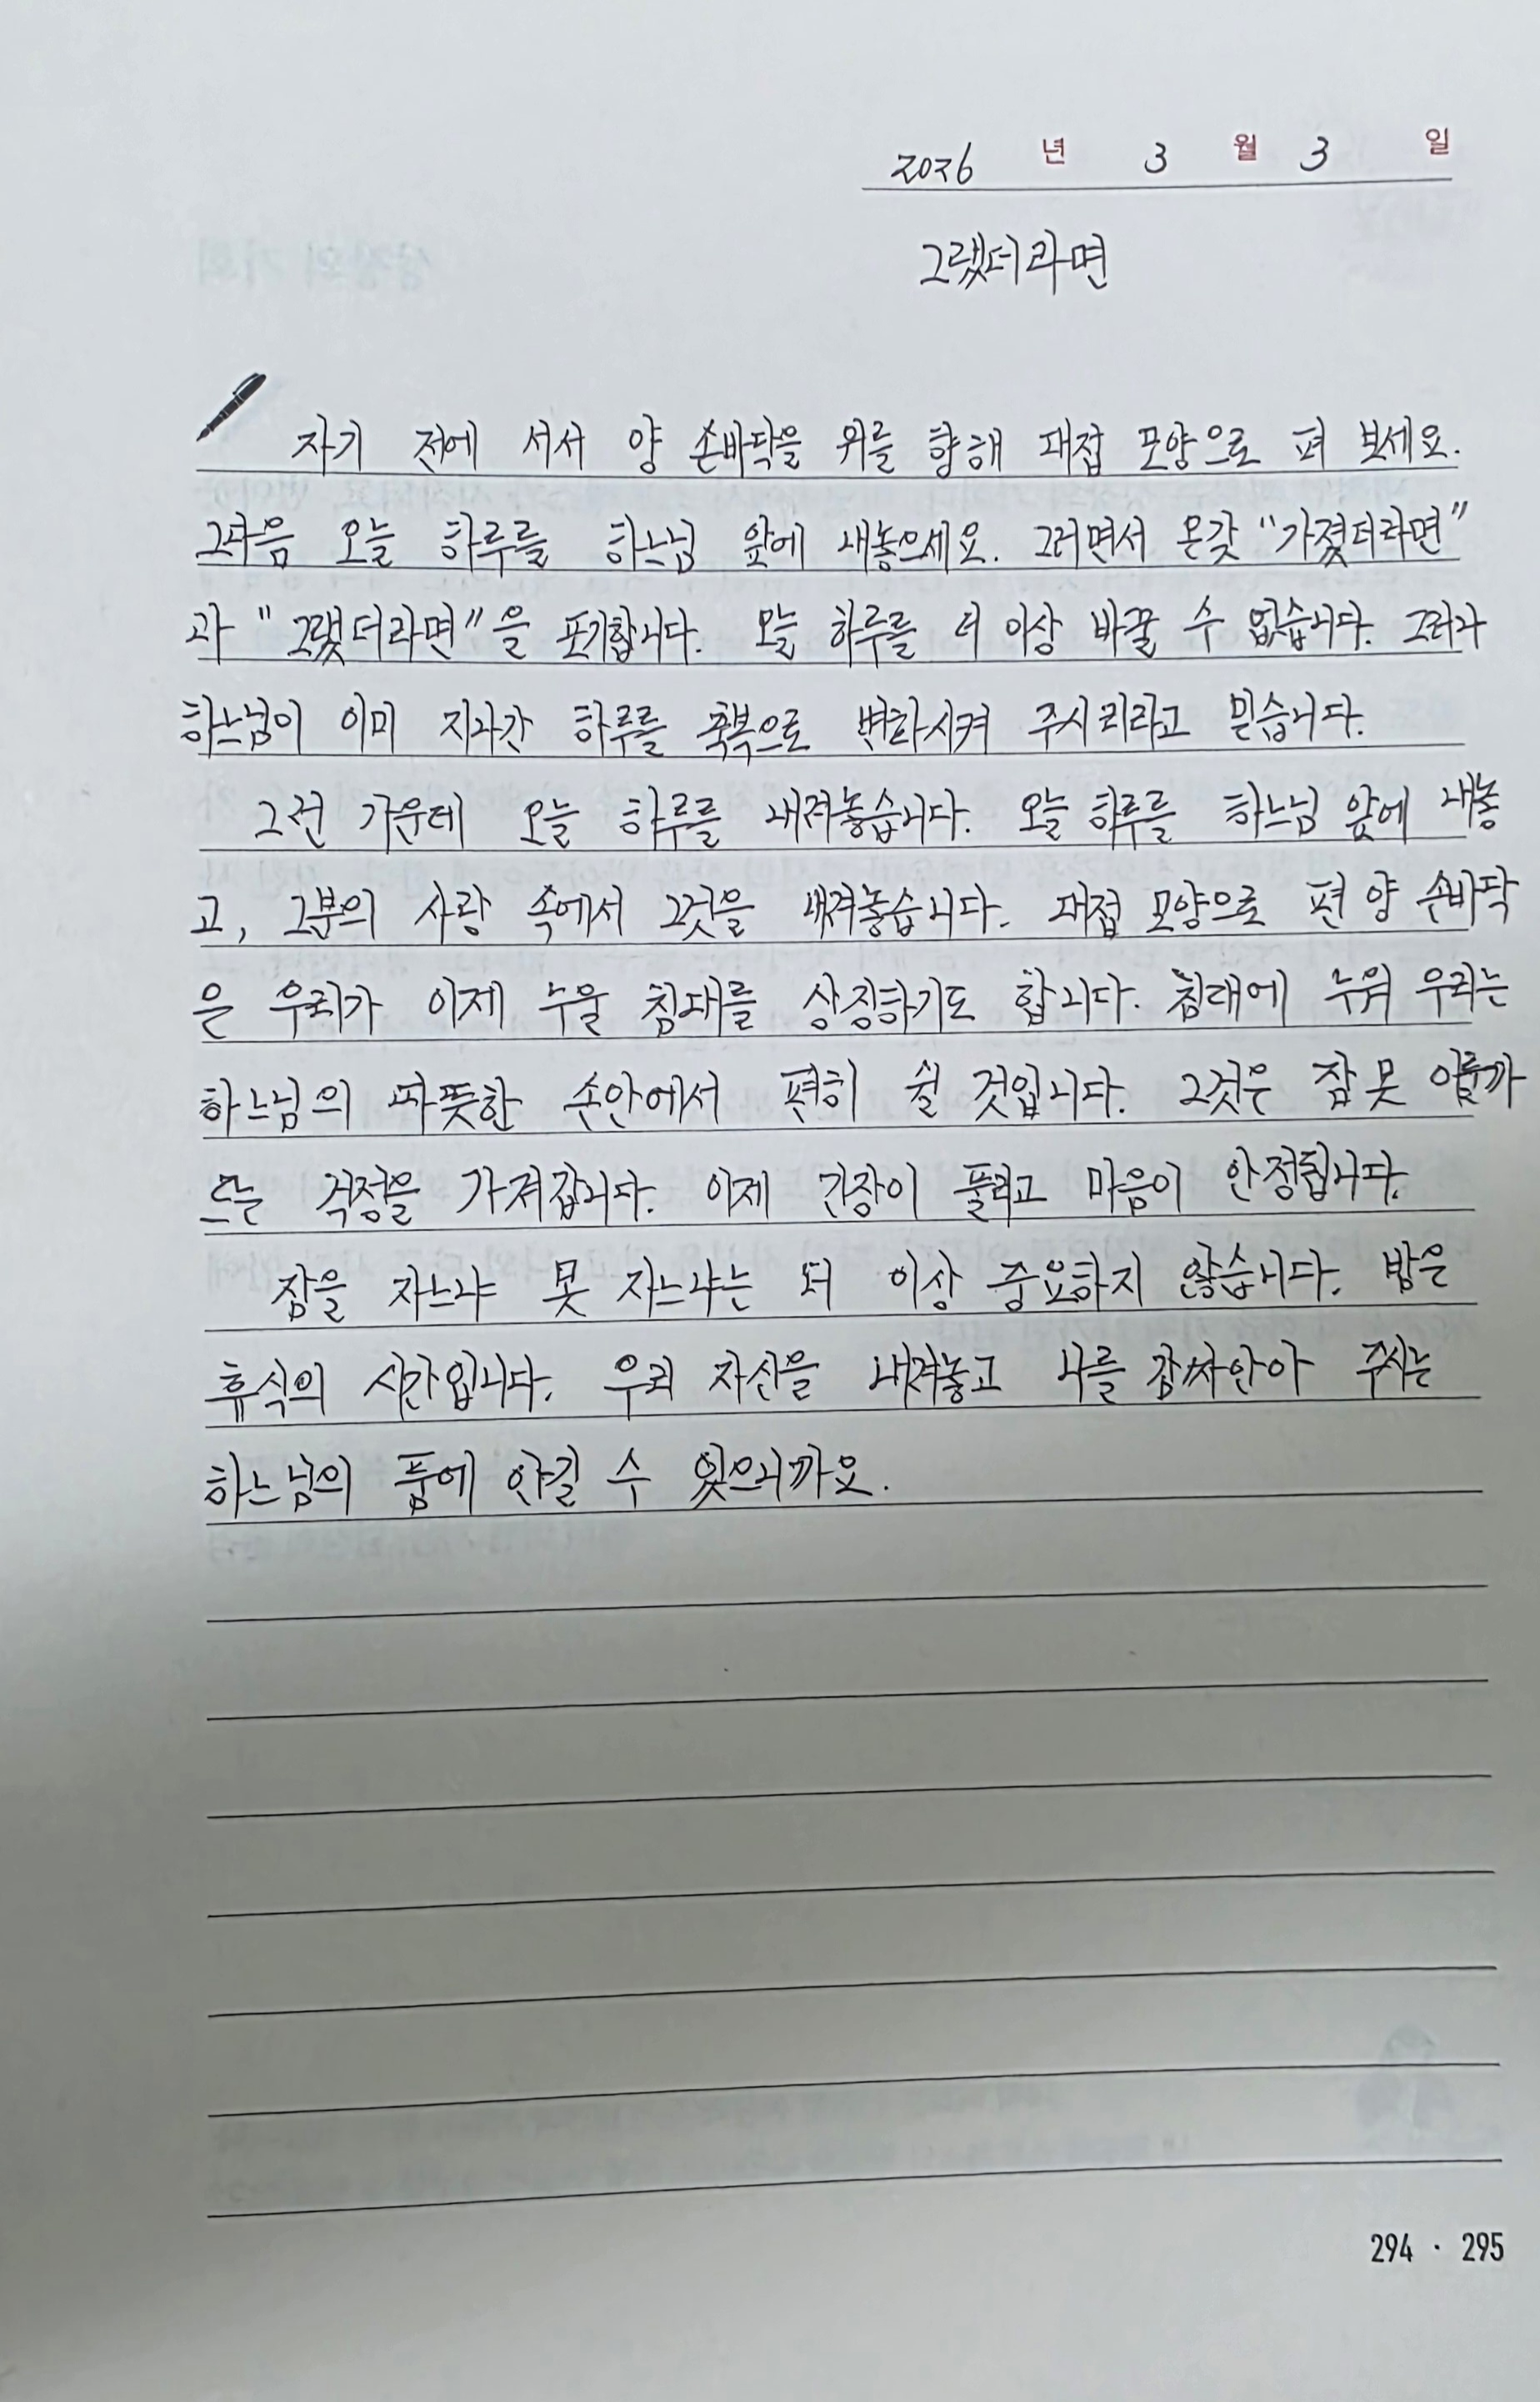 2026 년 3 월 3 일
그랬더라면
자기 전에 서서 양 손바닥을 위를 향해 대접 모양으로 펴 보세요.
그다음 오늘 하루를 하느님 앞에 내놓으세요. 그러면서 온갖 "가졌더라면"
과 "그랬더라면"을 포기합니다. 오늘 하루를 더 이상 바꿀 수 없습니다. 그러나
하느님이 이미 지나간 하루를 축복으로 변화시켜 주시리라고 믿습니다.
그런 가운데 오늘 하루를 내려놓습니다. 오늘 하루를 하느님 앞에 내놓
고, 그분의 사랑 속에서 그것을 내려놓습니다. 대접 모양으로 편 양 손바닥
은 우리가 이제 누울 침대를 상징하기도 합니다. 침대에 누워 우리는
하느님의 따뜻한 손안에서 편히 쉴 것입니다. 그것은 잠 못 이룰까
드는 걱정을 가져갑니다. 이제 긴장이 풀리고 마음이 안정됩니다.
잠을 자느냐 못 자느냐는 더 이상 중요하지 않습니다. 밤은
휴식의 시간입니다. 우리 자신을 내려놓고 나를 감싸안아 주시는
하느님의 품에 안길 수 있으니까요.
294 · 295